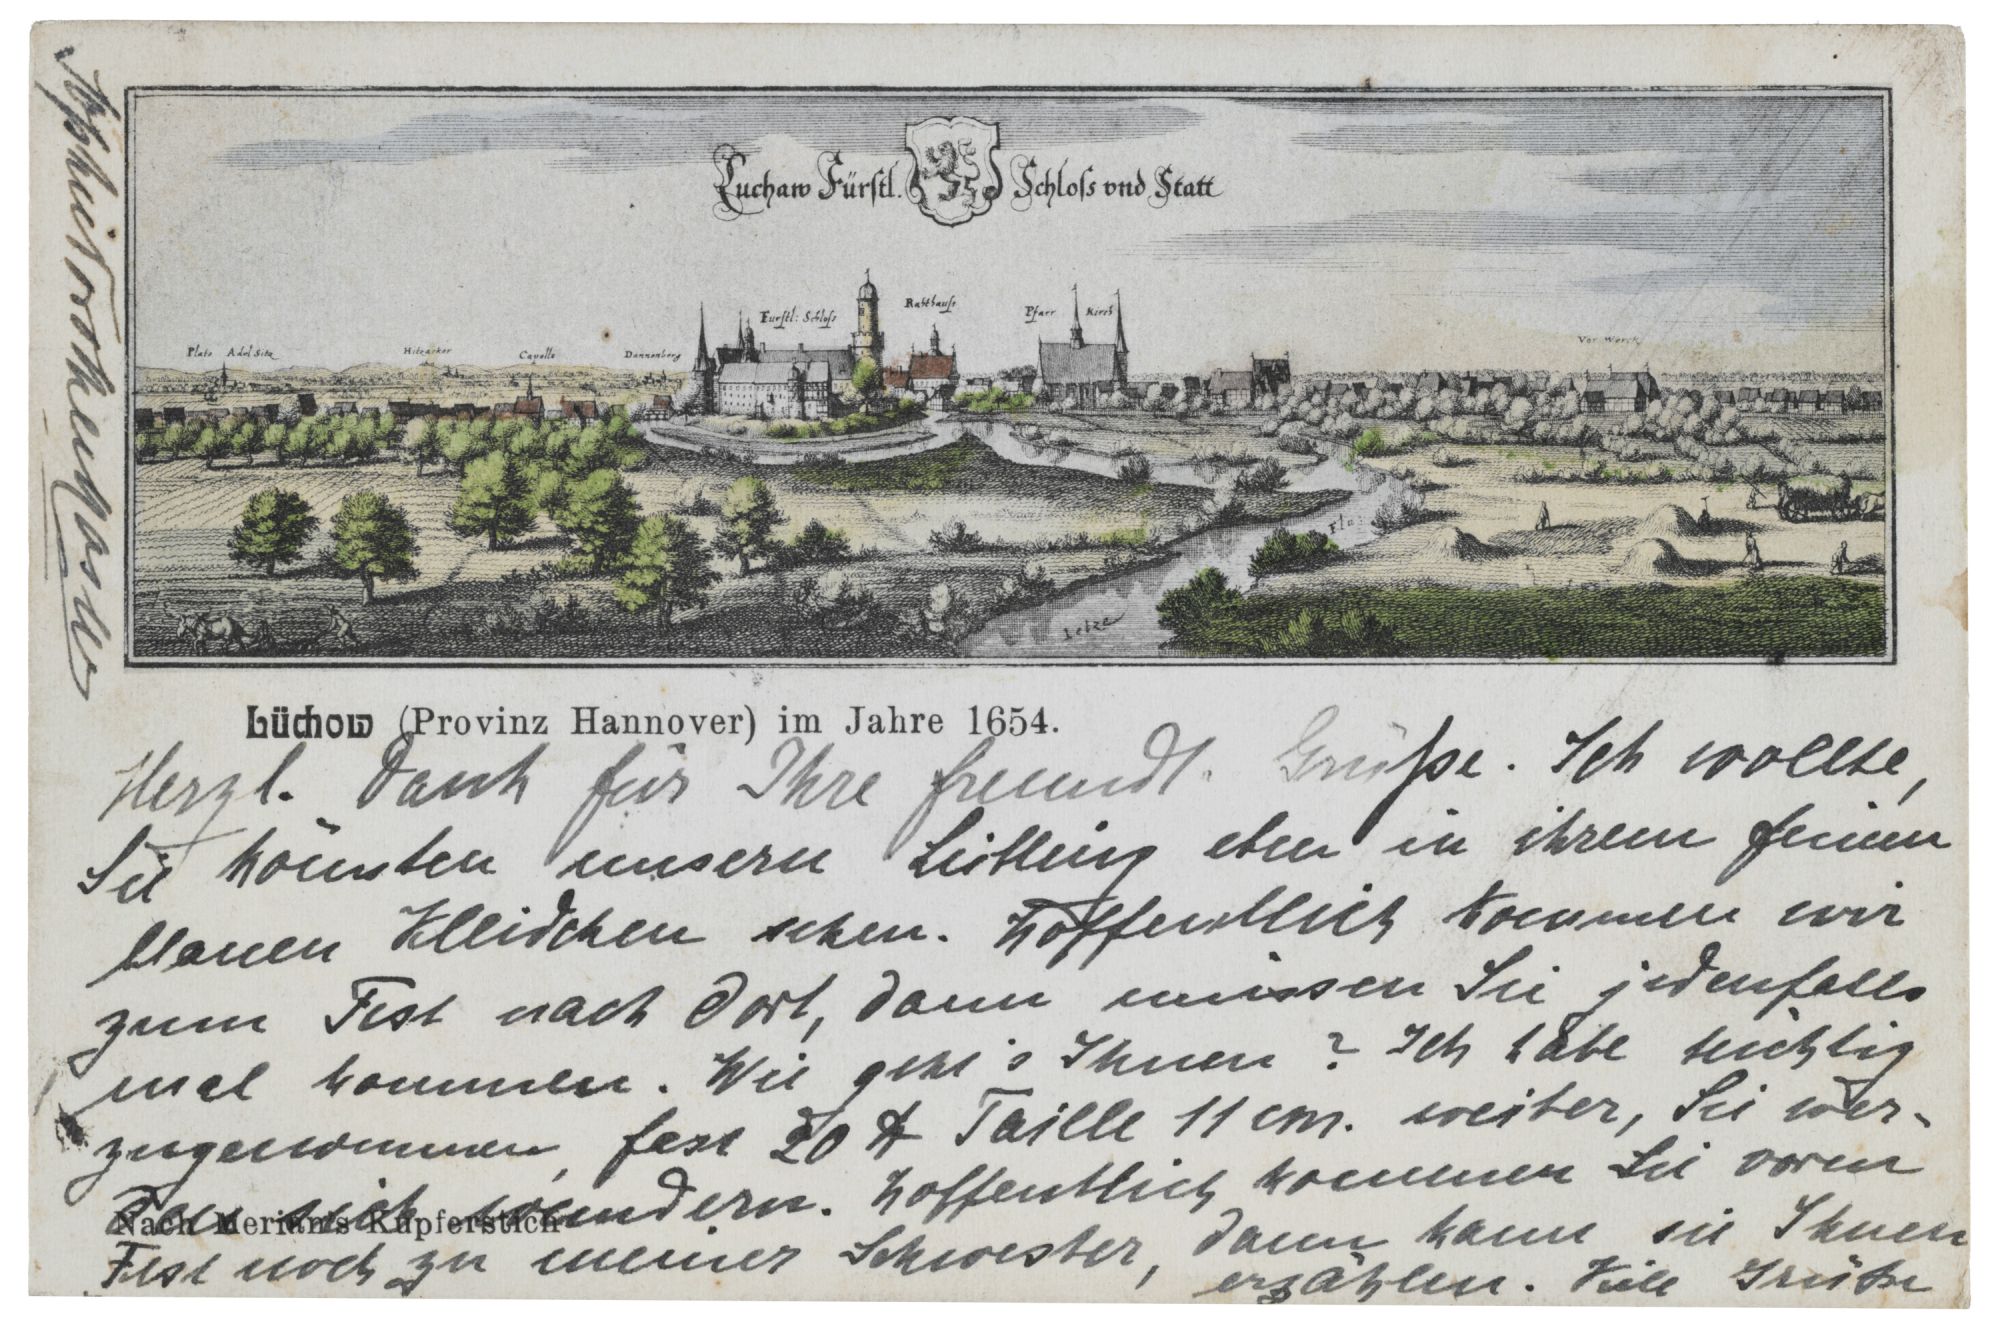 Luchaw Fürstl. Schloss vnd Statt
Plate Adel Sitz
Hitzacker
Capelle
Dannenberg
Furstl: Schloss
Rahthauss
Pfarr Kirch
Vor Werck
Ietze Flu:
Lüchow (Provinz Hannover) im Jahre 1654.
Herzl. Dank für Ihre freundl. Grüße. Ich wollte,
Sie könnten unsern Liebling eben in ihrem feinen
blauen Kleidchen sehen. Hoffentlich kommen wir
zum Fest nach dort, dann müssen Sie jedenfalls
mal kommen. Wie geht's Ihnen? Ich habe tüchtig
zugenommen, fast 20 ℔ Taille 11 cm. weiter, Sie wer-
den sich wundern. Hoffentlich kommen Sie vorm
Nach Merian's Kupferstich
Fest noch zu meiner Schwester, dann kann sie Ihnen
erzählen. Viele Grüße